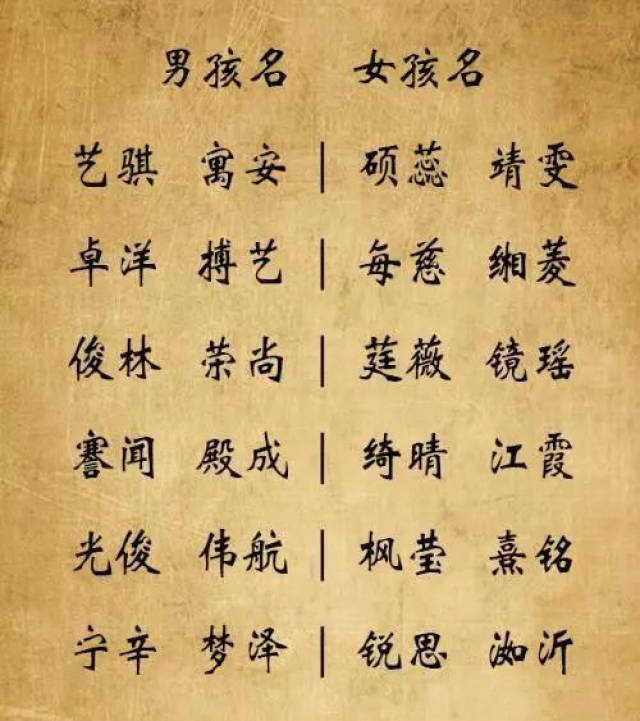 男孩名 女孩名
艺骐 寓安 | 硕蕊 靖雯
卓洋 搏艺 | 每慈 缃菱
俊林 荣尚 | 莛薇 镜瑶
謇闻 殿成 | 绮晴 江霞
光俊 伟航 | 枫莹 熹铭
宁辛 梦泽 | 锐思 洳沂